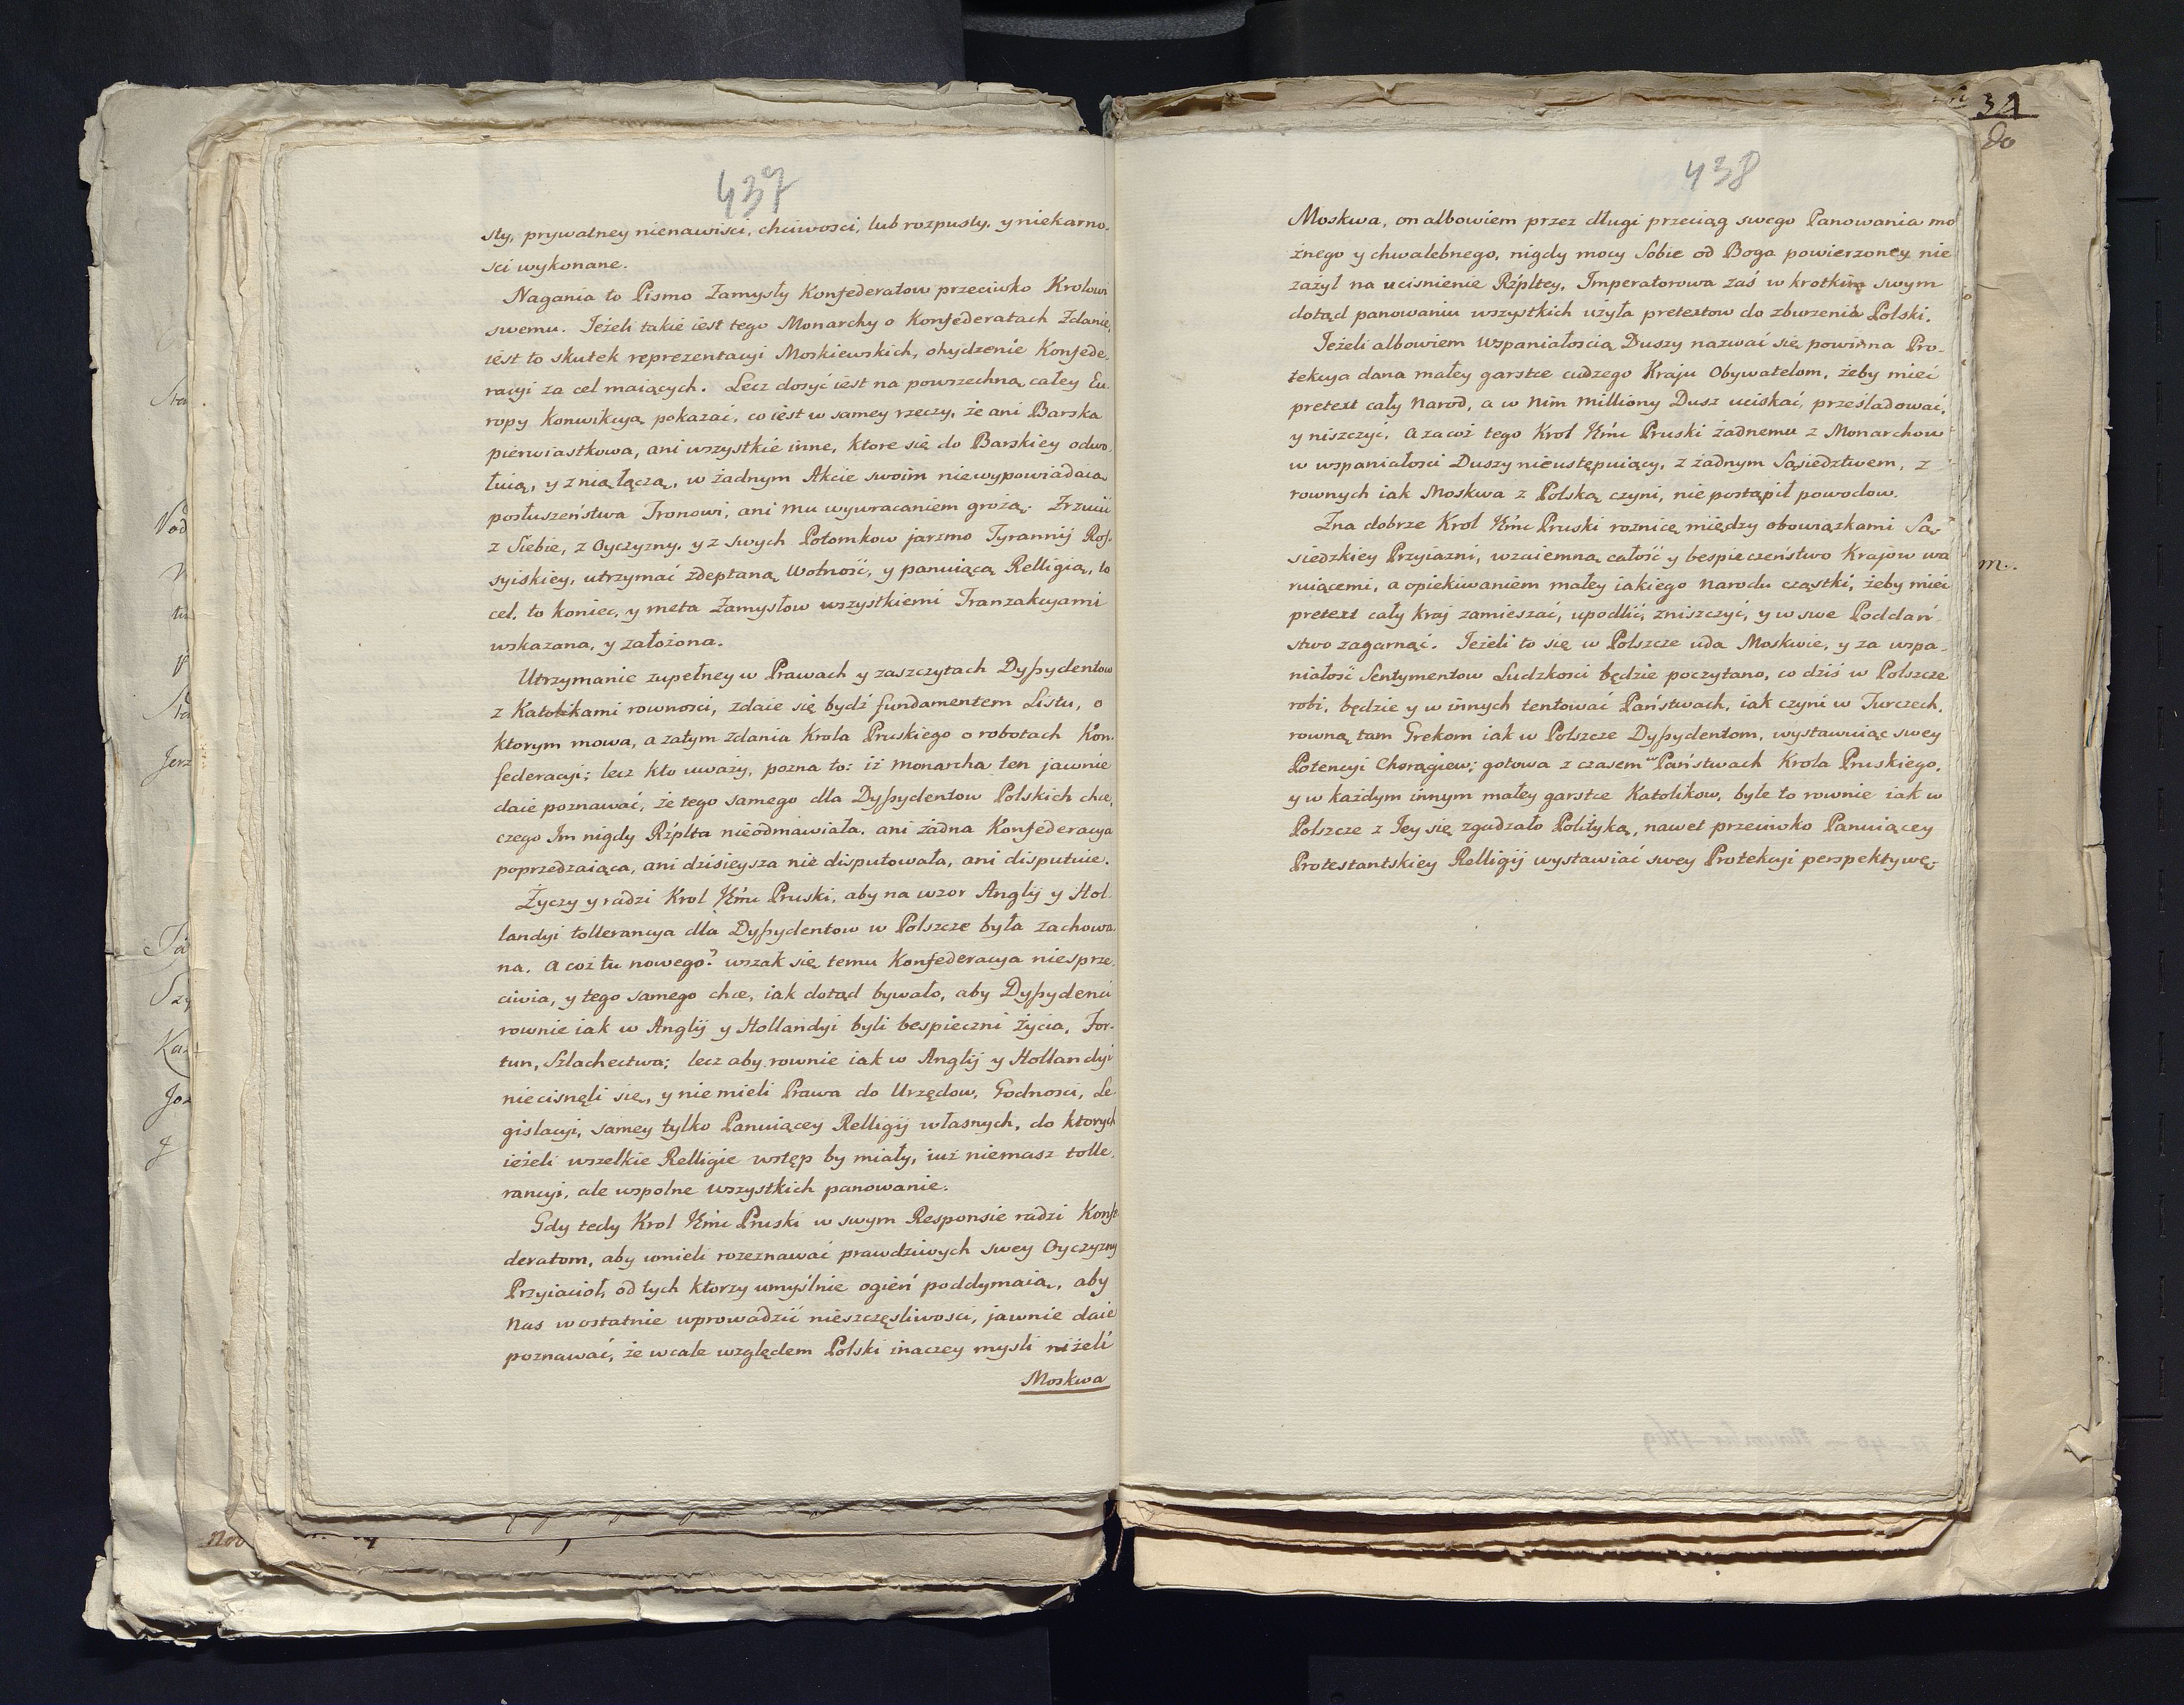 437
sty, prywatney nienawisci, chciwosci, lub rozpusty, y niekarno-
sci wykonane.
Nagania to Pismo Zamysły Konfederatow przeciwko Krolowi
swemu. Jeżeli takie iest tego Monarchy o Konfederatach Zdanie,
iest to skutek reprezentacyi Moskiewskich, ohydzenie Konfede-
racyi za cel maiących. Lecz dosyć iest na powszechną całey Eu-
ropy Konwikcyą pokazać, co iest w samey rzeczy, że ani Barska
pierwiastkowa, ani wszystkie inne, ktore się do Barskiey odwo-
łuią, y z nią łączą, w żadnym Akcie swoim niewypowiadaią
posłuszeństwa Tronowi, ani mu wywracaniem grożą. Zrzucić
z Siebie, z Oyczyzny, y z swych Potomkow jarzmo Tyrannij Ros-
syiskiey, utrzymać zdeptaną Wolność, y panuiącą Relligią, to
cel, to koniec, y meta Zamysłow wszystkiemi Tranzakcyami
wskazana, y założona.
Utrzymanie zupełney w Prawach y zaszczytach Dyssydentow
z Katolikami rownosci, zdaie się bydź fundamentem Listu, o
ktorym mowa, a zatym zdania Krola Pruskiego o robotach Kon-
federacyi; lecz kto uważy, pozna to: iż Monarcha ten jawnie
daie poznawać, że tego samego dla Dyssydentow Polskich chce,
czego Im nigdy Rzplta nieodmawiała, ani żadna Konfederacya
poprzedzaiąca, ani dzisieysza nie disputowała, ani disputuie.
Życzy y radzi Krol JEmc Pruski, aby na wzor Anglij y Hol-
landyi tollerancya dla Dyssydentow w Polszcze była zachowa-
na. A coż tu nowego? wszak się temu Konfederacya niesprze-
ciwia, y tego samego chce, iak dotąd bywało, aby Dyssydenci
rownie iak w Anglij y Hollandyi byli bespieczni życia, For-
tun, Szlachectwa; lecz aby rownie iak w Anglij y Hollandyi
niecisnęli się, y nie mieli Prawa do Urzędow, Godnosci, Le-
gislacyi, samey tylko Panuiącey Relligij własnych, do ktorych
ieżeli wszelkie Relligie wstęp by miały, iuż niemasz tolle-
rancyi, ale wspolne wszystkich panowanie.
Gdy tedy Krol JEmc Pruski w swym Responsie radzi Konfe-
deratom, aby umieli rozeznawać prawdziwych swey Oyczyzny
Przyiacioł, od tych ktorzy umyślnie ogień poddymaią, aby
Nas w ostatnie wprowadzić nieszczęsliwosci, jawnie daie
poznawać, że wcale względem Polski inaczey mysli niżeli
Moskwa
34
80
438
Moskwa, on albowiem przez długi przeciąg swego Panowania mo
żnego y chwalebnego, nigdy mocy Sobie od Boga powierzoney nie
zażył na ucisnienie Rzpltey, Imperatorowa zaś w krotkim swym
dotąd panowaniu wszystkich użyła pretextow do zburzenia Polski.
Jeżeli albowiem Wspaniałoscią Duszy nazwać się powinna Pro-
tekcya dana małey garstce cudzego Kraju Obywatelom, żeby mieć
pretext cały Narod, a w nim milliony Dusz uciskać, prześladować,
y niszczyć. A za coż tego Krol JEmc Pruski żadnemu z Monarchow
w wspaniałosci Duszy nieustępuiący, z żadnym Sąsiedztwem, z
rownych iak Moskwa z Polską czyni, nie postąpił powodow.
Zna dobrze Krol JEmc Pruski roznicę między obowiązkami Są-
siedzkiey Przyiazni, wzaiemną całość y bespieczeństwo Krajow wa
ruiącemi, a opiekiwaniem małey iakiego Narodu cząstki, żeby mieć
pretext cały kraj zamieszać, upodlić, zniszczyć, y w swe Poddań-
stwo zagarnąć. Jeżeli to się w Polszcze uda Moskwie, y za wspa-
niałość Sentymentow Ludzkosci będzie poczytano, co dziś w Polszcze
robi, będzie y w innych tentować Państwach, iak czyni w Turczech,
rowną tam Grekom iak w Polszcze Dyssydentom, wystawuiąc swey
Potencyi Chorągiew; gotowa z czasem w Państwach Krola Pruskiego,
y w każdym innym małey garstce Katolikow, byle to rownie iak w
Polszcze z Jey się zgadzało Polityką, nawet przeciwko Panuiącey
Protestantskiey Relligij wystawiać swey Protekcyi perspektywę.